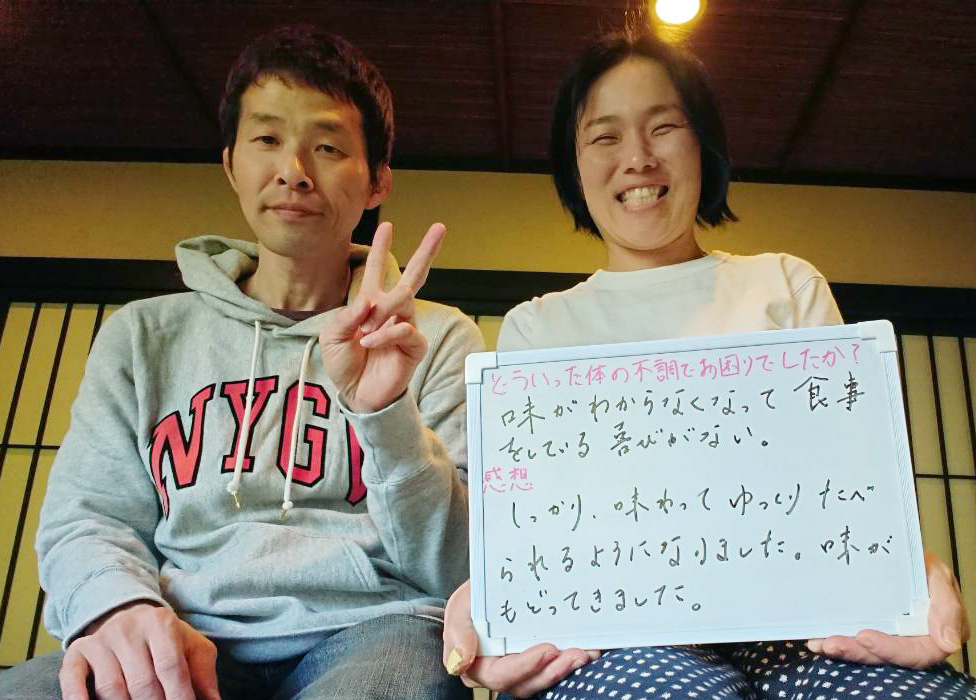 NYG
どういった体の不調でお困りでしたか？
味がわからなくなって食事
をしている喜びがない。
感想
しっかり、味わってゆっくりたべ
られるようになりました。味が
もどってきました。